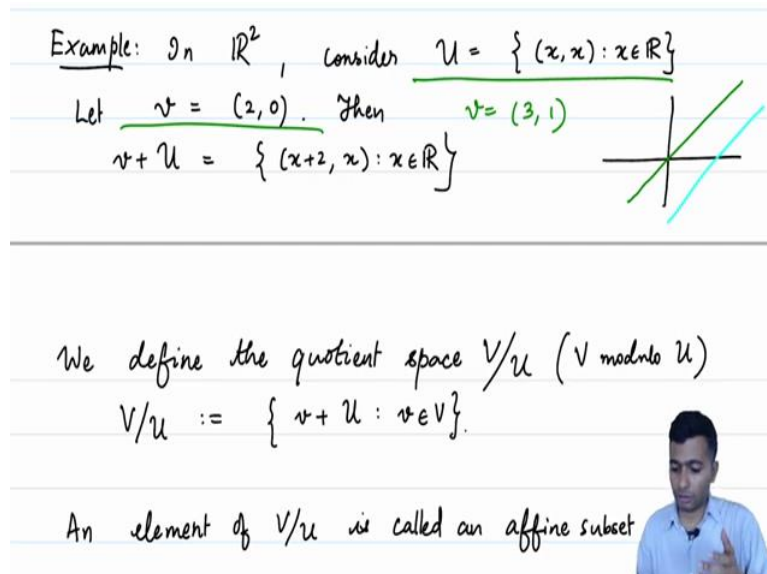 Example: In ℝ², consider U = { (x, x) : x ∈ ℝ}
Let v = (2, 0). Then v = (3, 1)
v + U = { (x+2, x) : x ∈ ℝ}
We define the quotient space V/U (V modulo U)
V/U := { v + U : v ∈ V}.
An element of V/U is called an affine subset